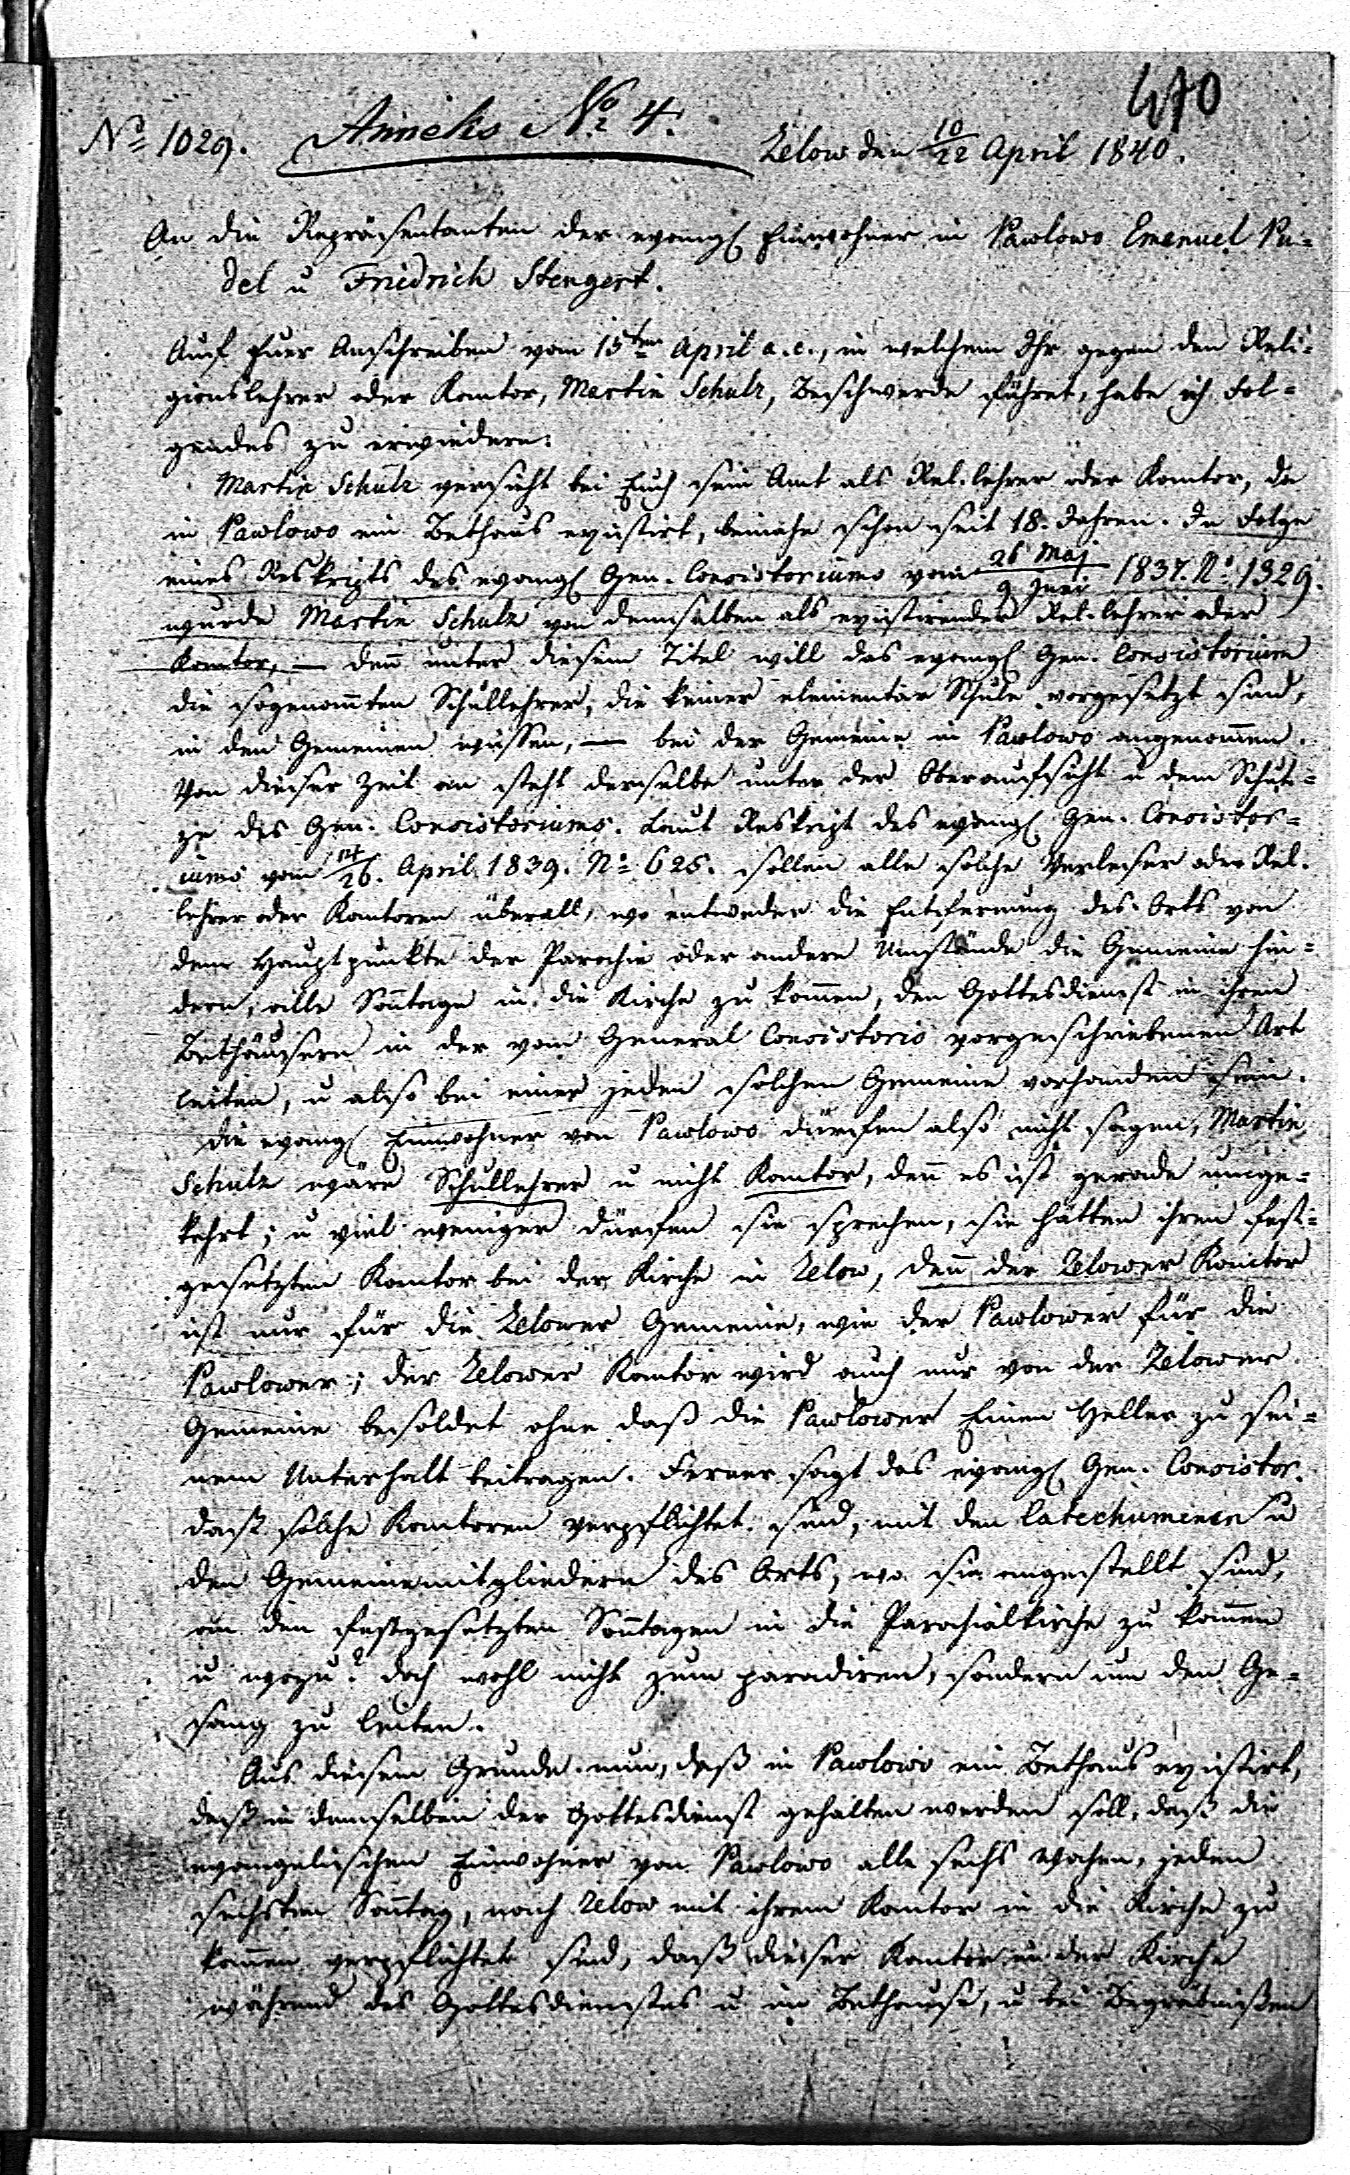 470
No 1029. Anneks No 4.
Zelow den 10/22 April 1840.
An die Repräsentanten der evangl Einwohner in Pawlowo Emanuel Pu=
del u Friedrich Stengert.
Auf Euer Anschreiben vom 15ten April a. c., in welchem Ihr gegen den Reli=
gionslehrer oder Kantor, Martin Schulz, Beschwerde führet, habe ich Fol=
gendes zu erwiedern:
Martin Schulz versieht bei Euch sein Amt als Rel. lehrer oder Kantor, da
in Pawlowo ein Bethaus existirt, beinahe schon seit 18. Jahren. In Folge
eines Reskripts des evangl Gen. Consistoriums vom 26 Maj/9 Juni 1837. No 1329.
wurde Martin Schulz von demselben als existirender Rel. lehrer oder
Kantor, — den unter diesem Titel will das evangl Gen. Consistorium
die sogenannten Schullehrer, die keiner elementär Schule vorgesetzt sind,
in den Gemeinen wissen, — bei der Gemeine in Pawlowo angenommen.
Von dieser Zeit an steht derselbe unter der Oberaufsicht u dem Schut=
ze des Gen. Consistoriums. Laut Reskript des evangl Gen. Consistor=
iums vom 14/26. April 1839. No 625. sollen alle solche Vorleser oder Rel.
lehrer oder Kantoren überall, wo entweder die Entfernung des Orts von
dem Hauptpunkte der Parochie oder andere Umstände die Gemeine hin=
dern, alle Sontage in die Kirche zu komen, den Gottesdienst in ihren
Bethäusern in der vom General Consistorio vorgeschriebenen Art
leiten, u also bei einer jeden solchen Gemeine vorhanden sein.
Die evangl Einwohner von Pawlowo dürfen also nicht sagen, Martin
Schulz wäre Schullehrer u nicht Kantor, den es ist gerade umge=
kehrt; u viel weniger dürfen sie sprechen, sie hätten ihren fest=
gesetzten Kantor bei der Kirche in Zelow, den der Zelower Kantor
ist nur für die Zelower Gemeine, wie der Pawlower für die
Pawlower; der Zelower Kantor wird auch nur von der Zelower
Gemeine besoldet ohne daß die Pawlower Einen Heller zu sei=
nem Unterhalt beitragen. Ferner sagt das evangl Gen. Consistor.
daß solche Kantoren verpflichtet sind, mit den Catechumenen u
den Gemeinemitgliedern des Orts, wo sie angestellt sind,
an den festgesetzten Sontagen in die Parochialkirche zu komen
u wozu? doch wohl nicht zum paradiren, sondern um den Ge=
sang zu leiten.
Aus diesem Grunde nun, daß in Pawlowo ein Bethaus existirt,
daß in demselben der Gottesdienst gehalten werden soll, daß die
evangelischen Einwohner von Pawlowo alle sechs Wochen, jeden
sechsten Sontag, nach Zelow mit ihrem Kantor in die Kirche zu
komen verpflichtet sind, daß dieser Kantor in der Kirche
während des Gottesdienstes u im Bethause, u bei Begräbnißen